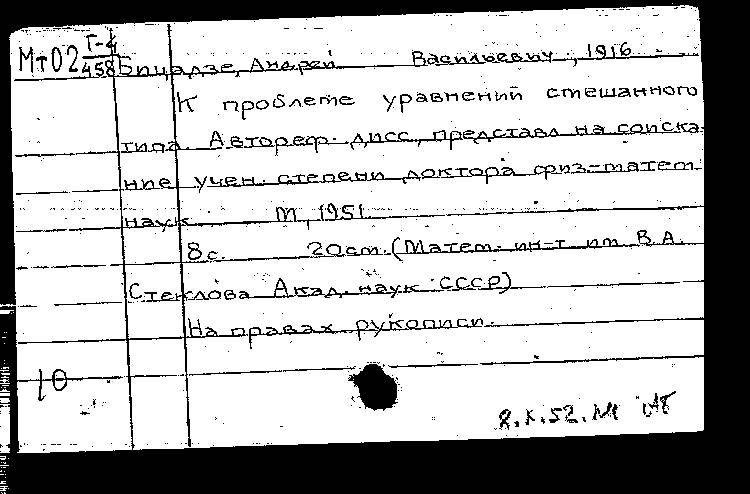 Мт02 Г-4/458 Бицадзе, Андрей Васильевич, 1916
К проблеме уравнений смешанного
типа. Автореф. дисс., представл на соиска-
ние учен. степени доктора физ-матем
наук М, 1951.
8с. 20см. (Матем. ин-т им В.А.
Стеклова Акад. наук СССР)
На правах рукописи.
10